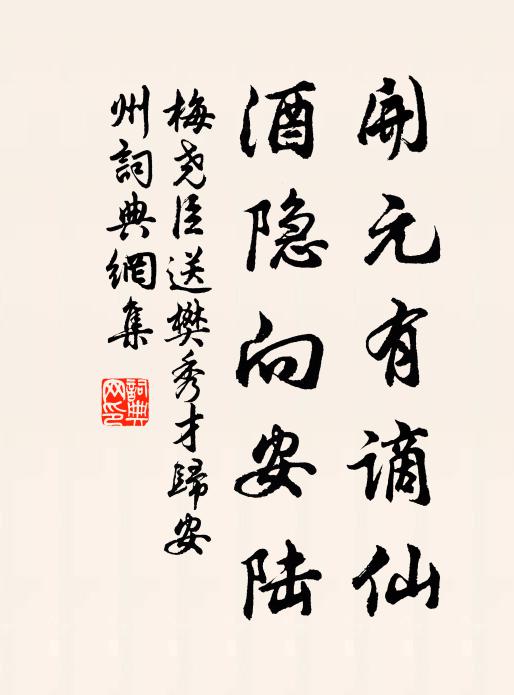 開元有谪仙
酒隐向安陆
梅尧臣送樊秀才歸安
州詞典網集
詞典
网印